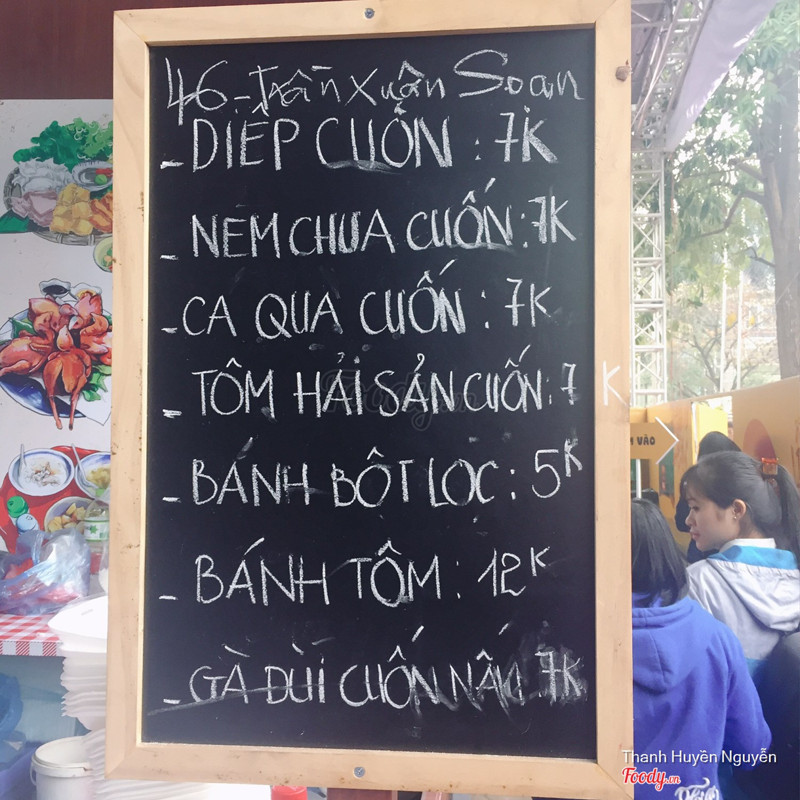 46 - Trần Xuân Soạn
- DIẾP CUỐN : 7K
- NEM CHUA CUỐN : 7K
- CA QUA CUỐN : 7K
- TÔM HẢI SẢN CUỐN : 7K
- BÁNH BỘT LỌC : 5K
- BÁNH TÔM : 12K
- GÀ ĐÙI CUỐN NẤM 7K
VÀO
Thanh Huyền Nguyễn
Foody.vn